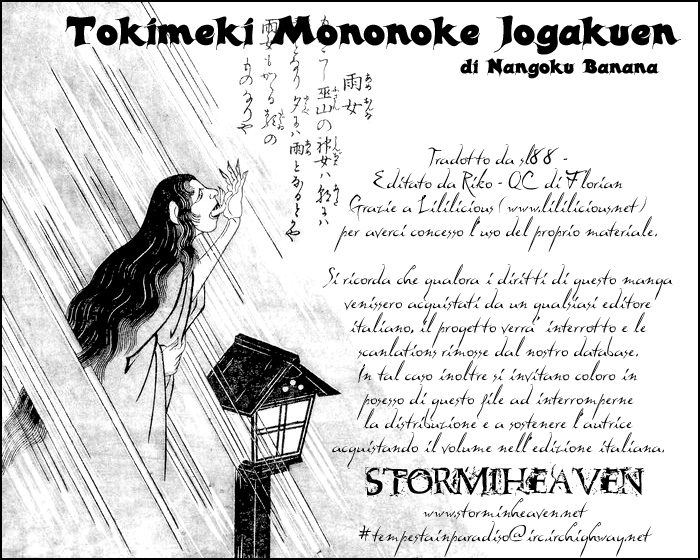 Tokimeki Mononoke Jogakuen
di Nangoku Banana
雨女
あめおんな
巫山の神女ハ朝にハ
となり夕にハ雨となるとかや
雨女もかゝる類の
ものなりや
Tradotto da sl88 -
Editato da Riko - QC di Florian
Grazie a Lililicious (www.lililicious.net)
per averci concesso l'uso del proprio materiale.
Si ricorda che qualora i diritti di questo manga
venissero acquistati da un qualsiasi editore
italiano, il progetto verra' interrotto e le
scanlations rimosse dal nostro database.
In tal caso inoltre si invitano coloro in
posesso di questo file ad interromperne
la distribuzione e a sostenere l'autrice
acquistando il volume nell'edizione italiana.
STORMIHEAVEN
www.storminheaven.net
#tempestainparadiso@irc.irchighway.net